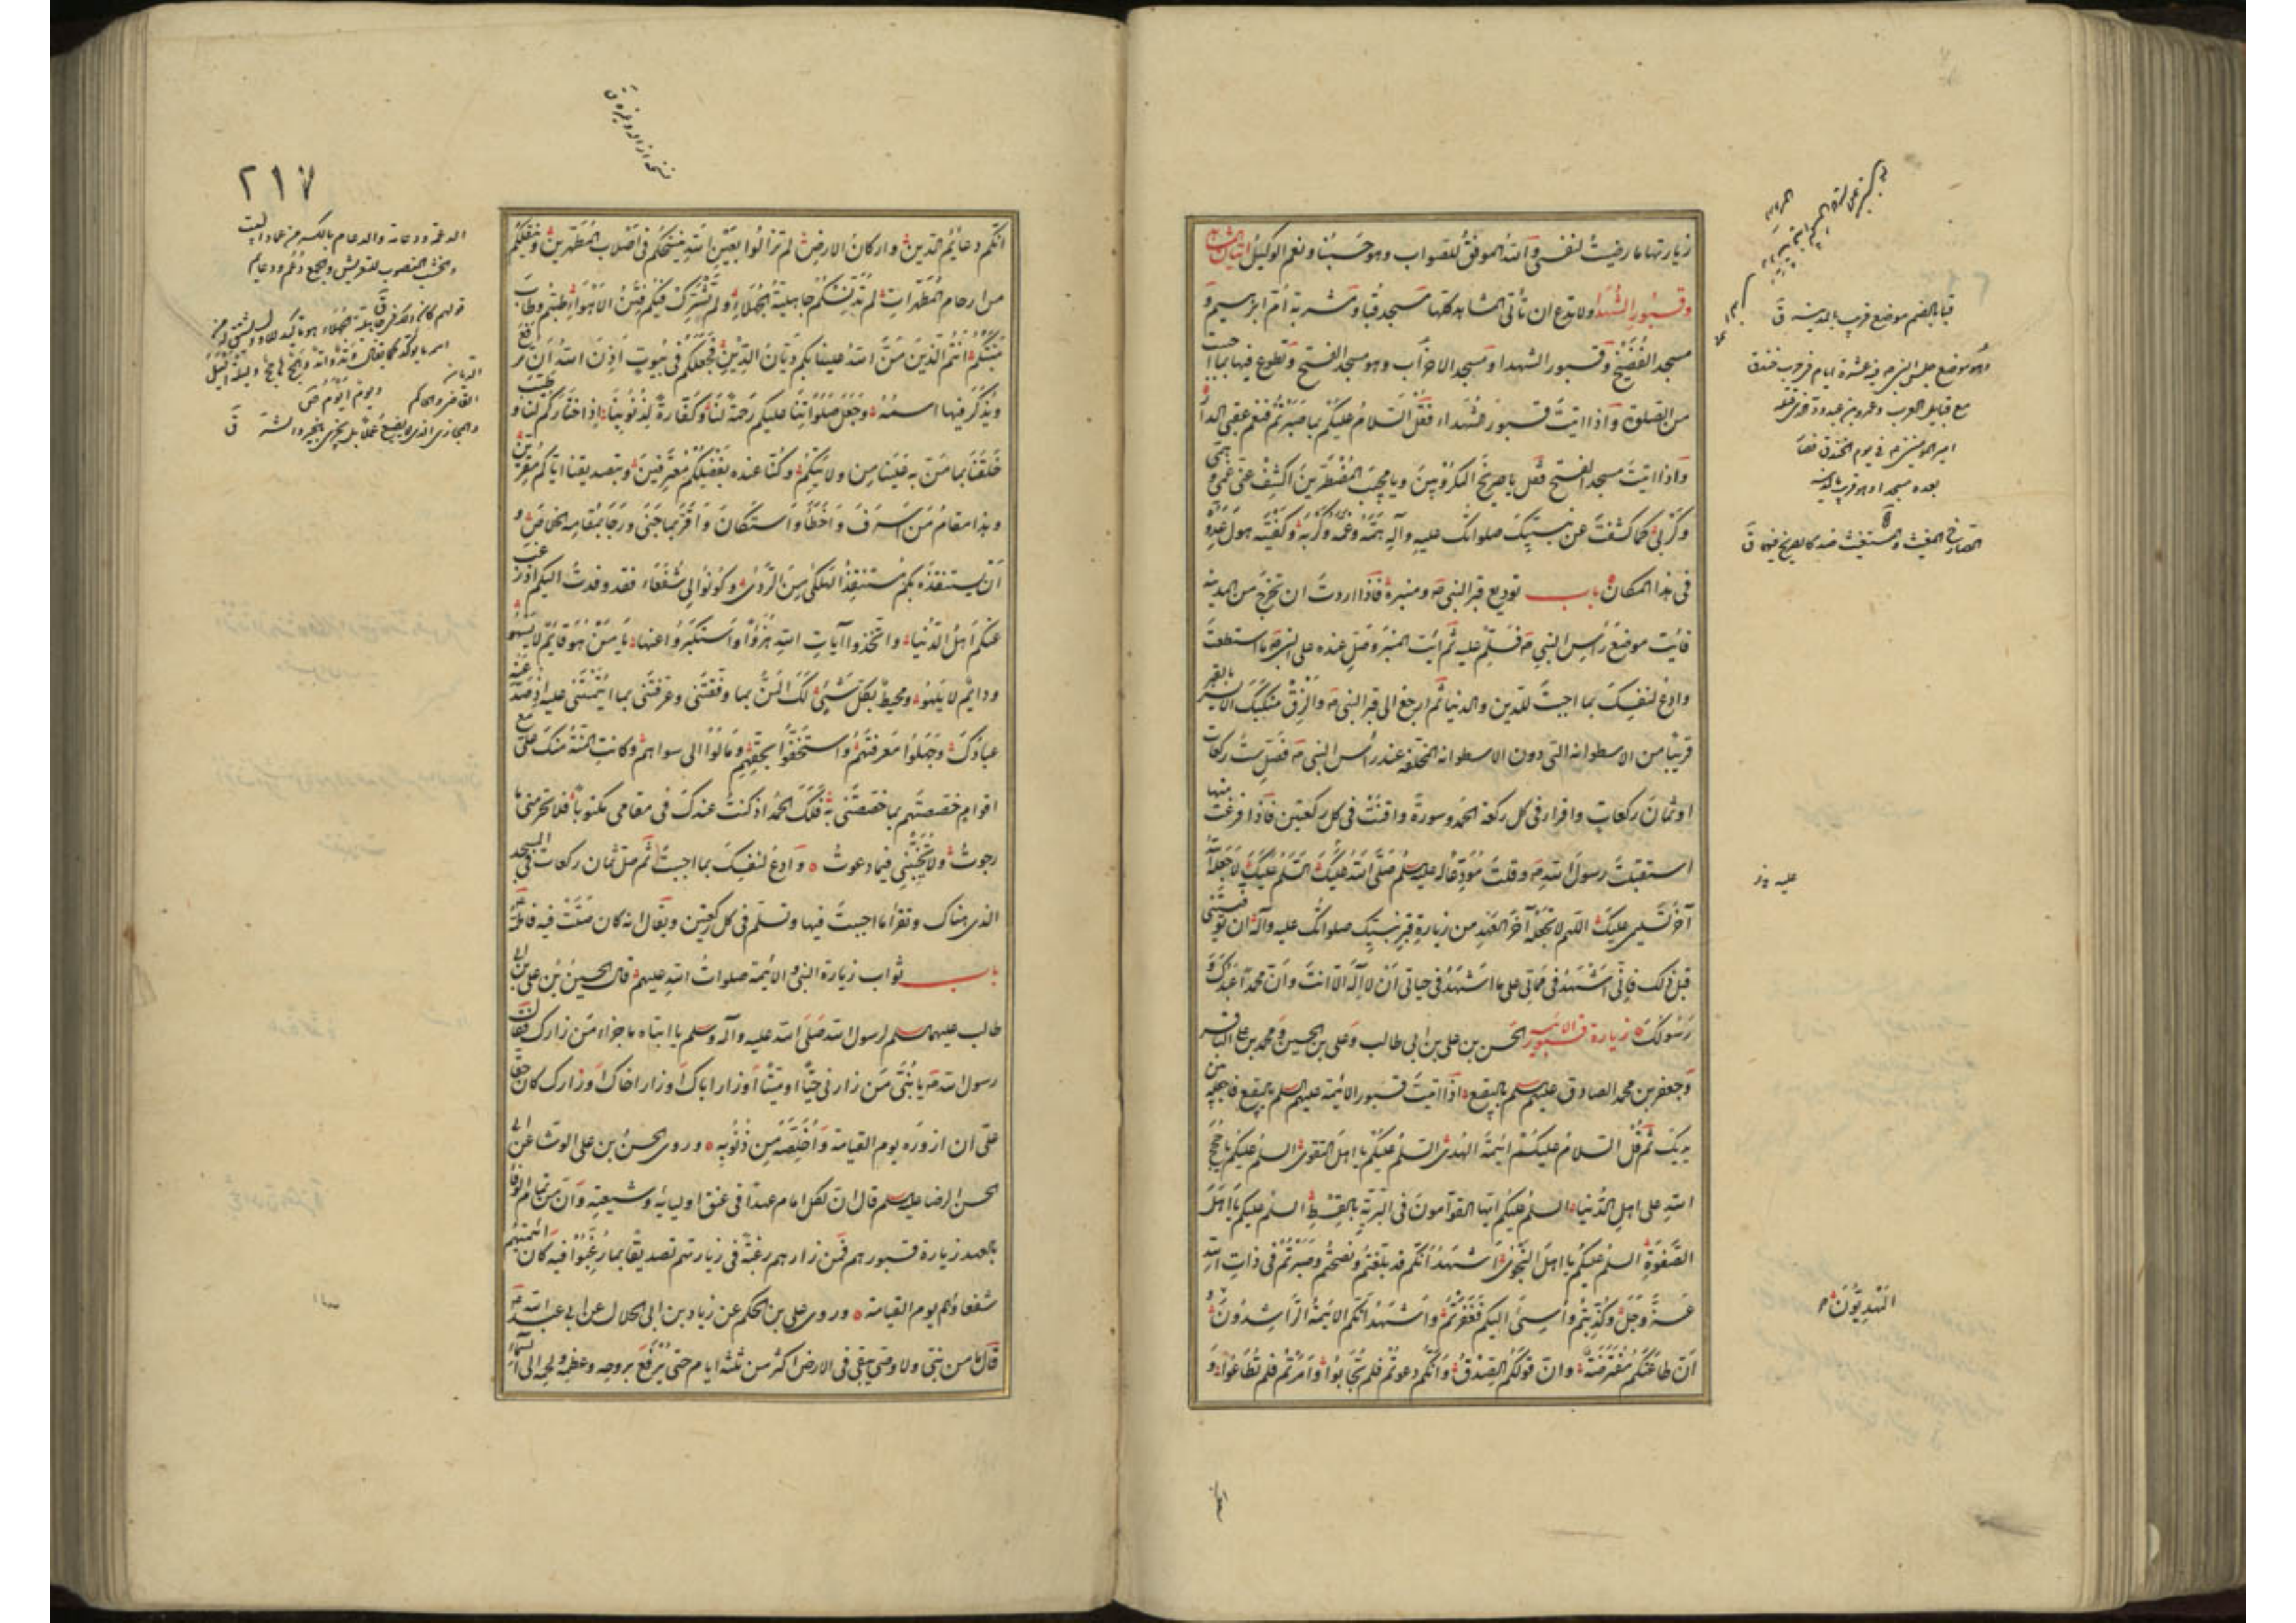 زيارتها ما رضيت لنفسي والله الموفق للصواب وهو حسبنا ونعم الوكيل اتيان المشاهد
وقبور الشهداء ولا تدع ان تأتي المشاهد كلها مسجد قبا ومشربة ام ابراهيم و
مسجد الفضيخ وقبور الشهدا ومسجد الاحزاب وهو مسجد الفتح وتطوع فيها بما احببت
من الصلوة واذا اتيت قبور الشهداء فقل السلام عليكم بما صبرتم فنعم عقبى الدار
واذا اتيت مسجد الفتح فقل يا صريخ المكروبين ويا مجيب المضطرين اكشف عني غمي وهمي
وكربي كما كشفت عن نبيك صلواتك عليه وآله همه وغمه وكربه وكفيته هول عدوه
في هذا المكان باب توديع قبر النبي ص ومنبره فاذا اردت ان تخرج من المدينة
فائت موضع رأس النبي ص فسلم عليه ثم ائت المنبر وصل عنده على النبي ص ما استطعت
وادع لنفسك بما احببت للدين والدنيا ثم ارجع الى قبر النبي ص والزق منكبك الايسر بالقبر
قريبا من الاسطوانه التي دون الاسطوانه المخلقه عند رأس النبي ص فصل ست ركعات
او ثمان ركعات واقرا في كل ركعة الحمد وسورة واقنت في كل ركعتين فاذا فرغت منها
استقبلت رسول الله ص وقلت مودعا له عليه السلم صلى الله عليك السلم عليك لا جعله الله
آخر تسليمي عليك اللهم لا تجعله آخر العهد من زيارة قبر نبيك صلواتك عليه وآله ان توفيتني
قبل ذلك فاني اشهد في مماتي على ما اشهد في حياتي ان لا اله الا انت وان محمدا عبدك و
رسولك زيارة قبور الائمه الحسن بن علي بن ابي طالب وعلي بن الحسين ومحمد بن علي الباقر
وجعفر بن محمد الصادق عليهم السلم بالبقيع اذا اتيت قبور الائمه عليهم السلم بالبقيع فاجعلها بين
يديك ثم قل السلام عليكم ائمة الهدى السلم عليكم يا اهل التقوى السلم عليكم يا حجج
الله على اهل الدنيا السلم عليكم ايها القوامون في البرية بالقسط السلم عليكم يا اهل
الصفوة السلم عليكم يا اهل النجوى اشهد انكم قد بلغتم ونصحتم وصبرتم في ذات الله
عز وجل وكذبتم واسيئ اليكم فغفرتم واشهد انكم الائمة الراشدون
ان طاعتكم مفترضة وان قولكم الصدق وانكم دعوتم فلم تجابوا وامرتم فلم تطاعوا و
قبا بالضم موضع قرب بالمدينه ق
امير المؤمنين ع في يوم الخندق
عليه
المهديون
انكم
٢١٧
انكم دعائم الدين واركان الارض لم تزالوا بعين الله ينسخكم في اصلاب المطهرين وينقلكم
من ارحام المطهرات لم تدنسكم جاهلية الجهلاء ولم تشرك فيكم فتن الاهواء طبتم وطاب
منبتكم انتم الذين من الله علينا بكم ديان الدين فجعلكم في بيوت اذن الله ان ترفع
ويذكر فيها اسمه وجعل صلواتنا عليكم رحمة لنا وكفارة لذنوبنا اذ اختاركم لنا وطيب
خلقنا بما من به علينا من ولايتكم وكنا عنده بفضلكم معترفين وبتصديقنا اياكم مقرين
وهذا مقام من اسرف واخطأ واستكان واقر بما جنى ورجا بمقامه الخلاص و
ان يستنقذه بكم مستنقذ الهلكى من الردى وكونوا لي شفعاء فقد وفدت اليكم اذ رغب
عنكم اهل الدنيا واتخذوا آيات الله هزوا واستكبروا عنها يا من هو قائم لا يسهو
ودائم لا يلهو ومحيط بكل شيئ لك المن بما وفقتني وعرفتني بما ائتمنتني عليه اذ صد عنه
عبادك وجهلوا معرفتهم واستخفوا بحقهم ومالوا الى سواهم وكانت المنة منك علي مع
اقوام خصصتهم بما خصصتني به فلك الحمد اذ كنت عندك في مقامي مكتوبا فلا تحرمني ما
رجوت ولا تخيبني فيما دعوت وادع لنفسك بما احببت ثم صل ثمان ركعات في المسجد
الذي هناك وتقرأ ما احببت فيها وتسلم في كل ركعتين ويقال انه كان صلت فيه فاطمة
باب ثواب زيارة النبي والائمة صلوات الله عليهم قال الحسين بن علي بن ابي
طالب عليهما السلم لرسول الله صلى الله عليه وآله وسلم يا ابتاه ما جزاء من زارك فقال
رسول الله ص يا بني من زارني حيا او ميتا او زار اباك او زار اخاك او زارك كان حقا
علي ان ازوره يوم القيامة واخلصه من ذنوبه وروى الحسن بن علي الوشا عن ابي
الحسن الرضا عليه السلم قال ان لكل امام عهدا في عنق اوليائه وشيعته وان من تمام الوفا
بالعهد زيارة قبورهم فمن زارهم رغبة في زيارتهم تصديقا بما رغبوا فيه كان ائمتهم
شفعاؤهم يوم القيامة وروى علي بن الحكم عن زياد بن ابي الحلال عن ابي عبد الله
قال ما من نبي ولا وصي يبقى في الارض اكثر من ثلثة ايام حتى يرفع بروحه وعظمه ولحمه الى السماء